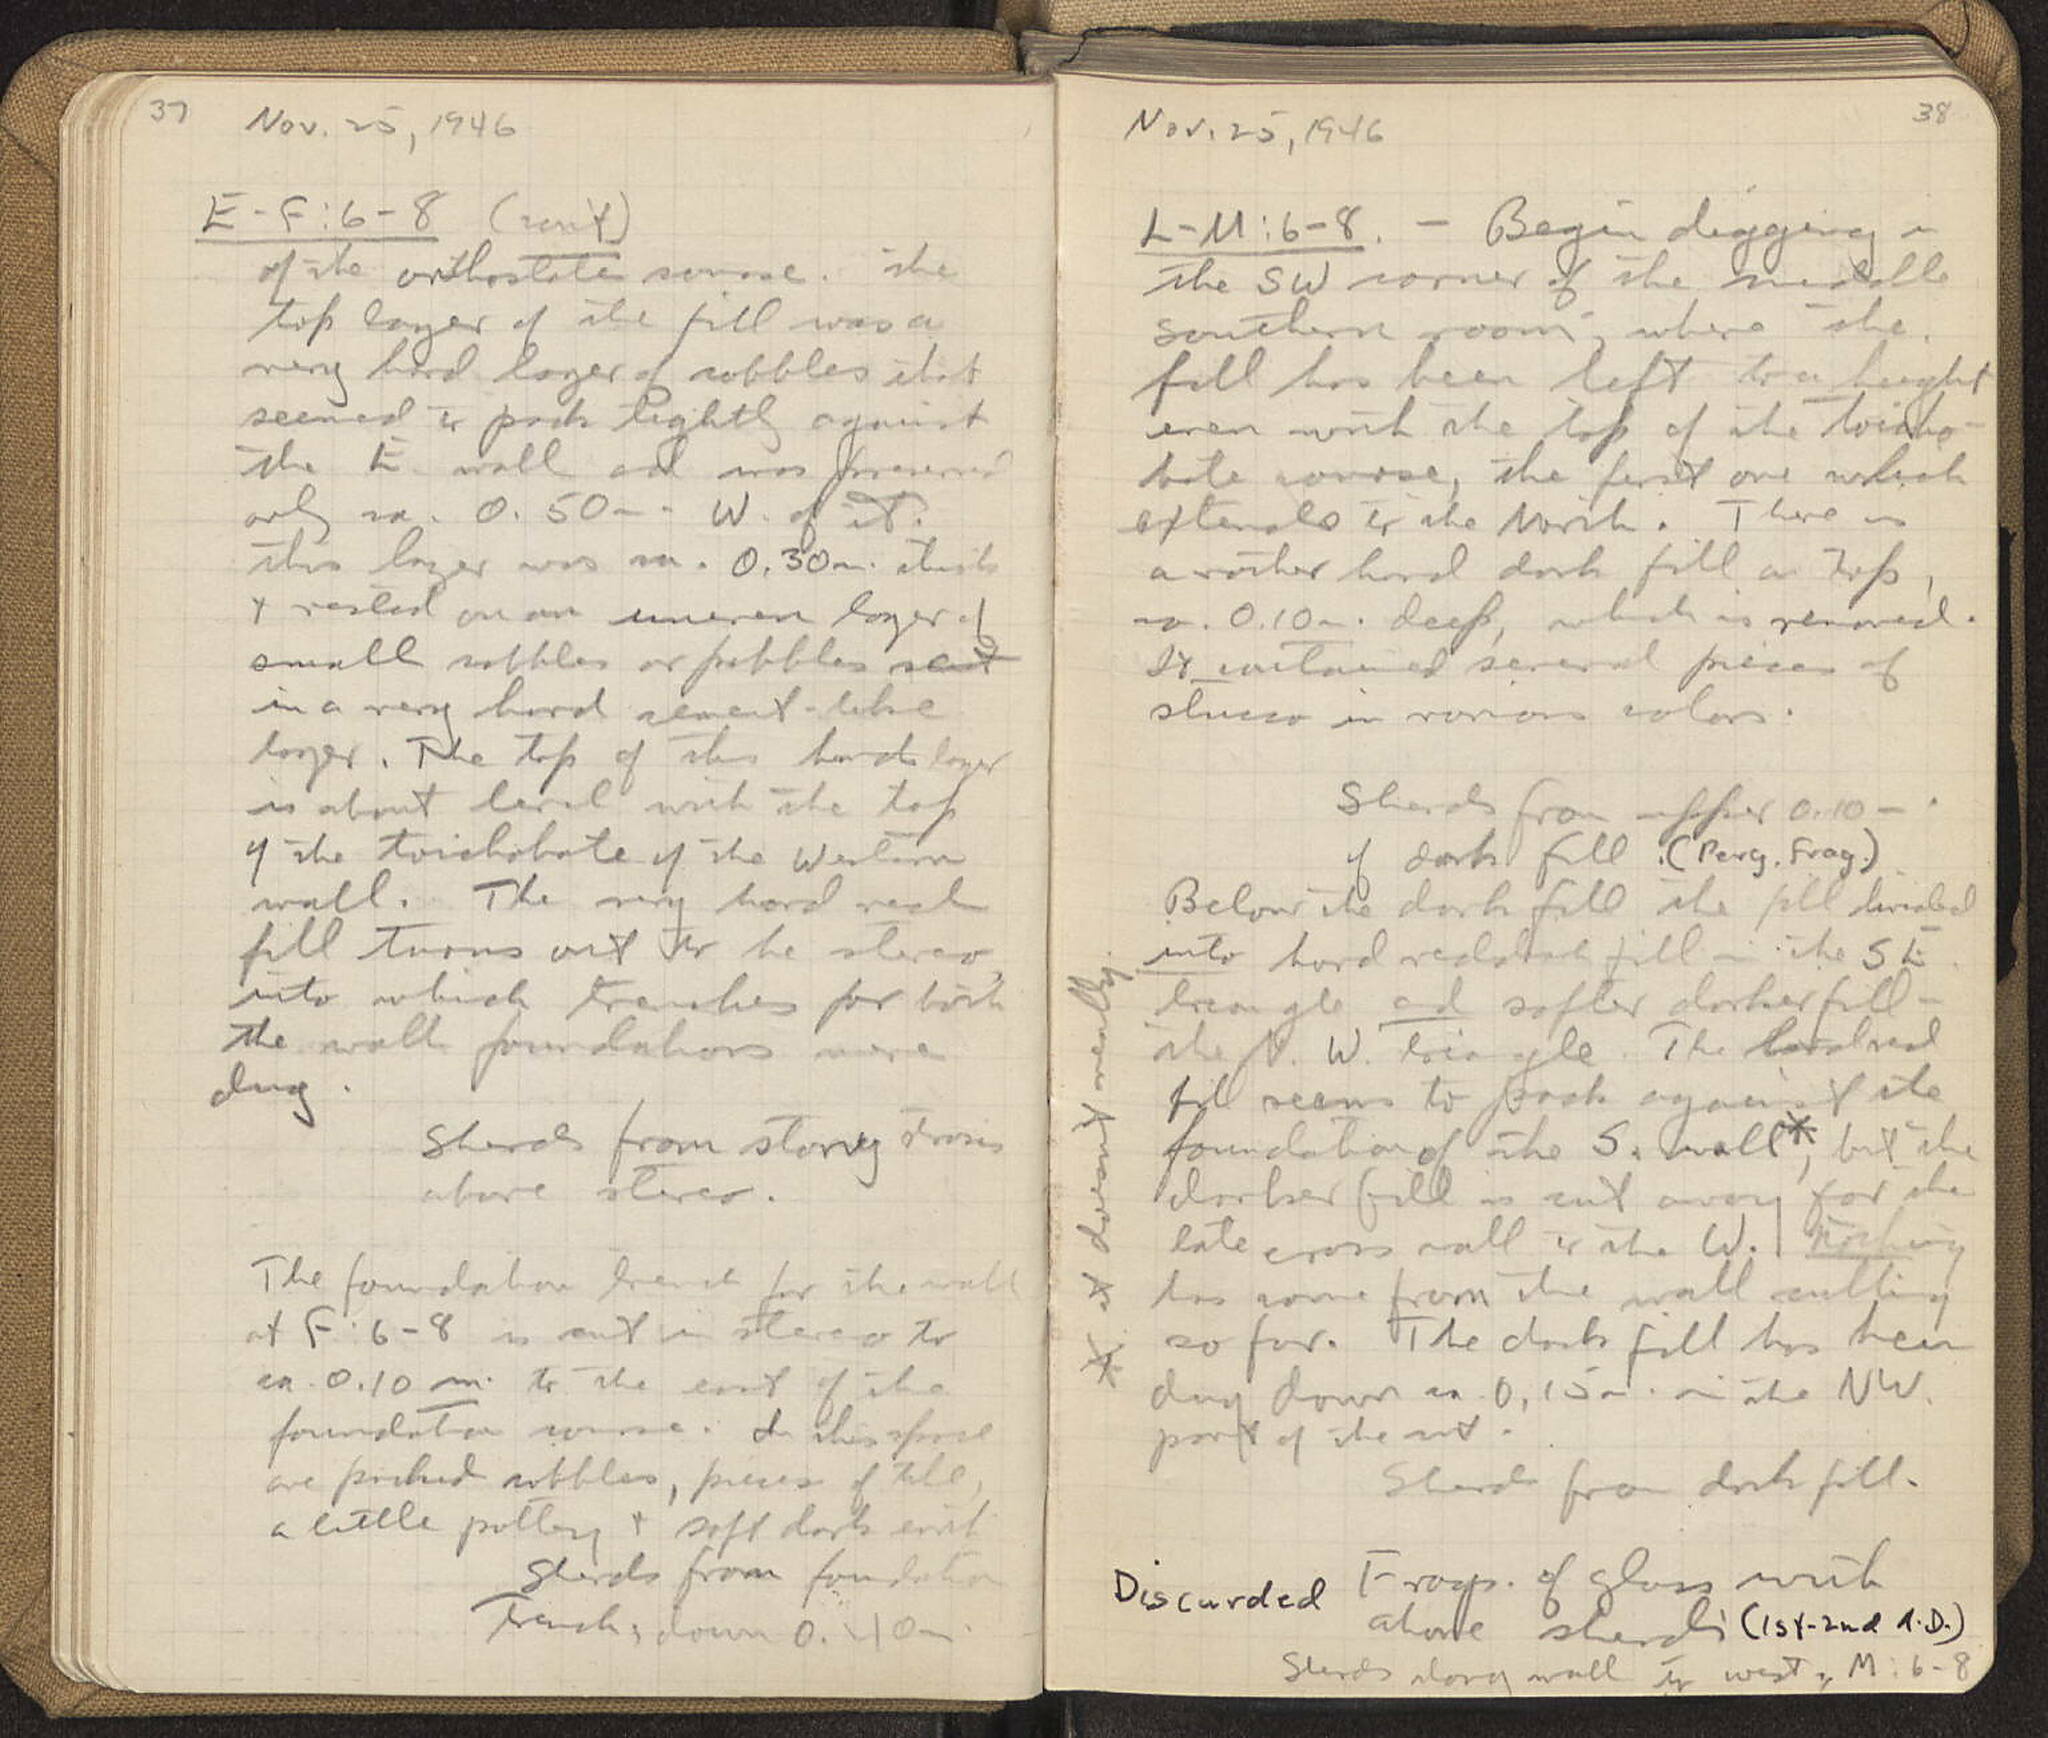 37
Nov. 25, 1946
E-F:6-8 (con't)
of the orthostate course. The
top layer of the fill was a
very hard layer of cobbles that
seemed to pack tightly against
the E. wall and was preserved
only ca. 0.50m. W. of it.
This layer was ca. 0.30m. thick
+ rested on an uneven layer of
small cobbles or pebbles set
in a very hard cement-like
layer. The top of this hard layer
is about level with the top
of the toichobate of the Western
wall. The very hard red
fill turns out to be stereo,
into which trenches for both
the wall foundations were
dug.
Sherds from stoney
above stereo.
The foundation trench for the wall
at F:6-8 is cut in stereo to
ca. 0.10 m. to the east of the
foundation course. In this space
are packed cobbles, pieces of tile,
a little pottery + soft dark earth
Sherds from foundation
Trench, down 0.10m.
38
Nov. 25, 1946
L-M:6-8. - Begin digging in
the SW corner of the middle
southern room, where the
fill has been left to a height
even with the top of the toicho-
bate course, the first one which
extends to the North. There is
a rather hard dark fill on top,
ca. 0.10m. deep, which is removed.
It contained several pieces of
stucco in various colors.
Sherds from upper 0.10m.
of dark fill (Perg. Frag.)
Below the dark fill the fill divided
into hard reddish fill in the SE
triangle and softer darker fill in
the N.W. triangle. The hard red
fill seems to pack against the
foundation of the S. wall*, but the
darker fill is cut away for the
late cross wall to the W. Nothing
has come from the wall cutting
so far. The dark fill has been
dug down ca. 0.15m. in the NW.
part of the cut.
Sherds from dark fill.
Discarded Frags. of glass with
above sherds (1st-2nd A.D.)
Sherds along wall to west, M:6-8
* it doesn't really.